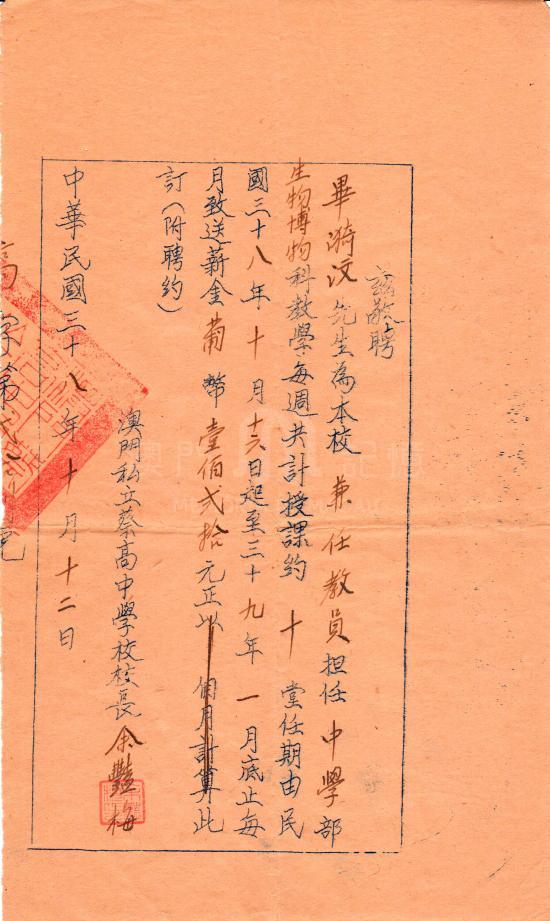 茲敬聘
畢漪汶先生為本校 兼任教員担任中學部
生物博物科教學每週共計授課約 十 堂任期由民
國三十八年十月十六日起至三十九年 一 月底止每
月致送薪金葡幣壹佰弍拾元正以 個月計算此
訂（附聘約）
澳門私立蔡高中學校校長 余艷梅
中華民國三十八年十月十二日
高字第
號
澳門記憶